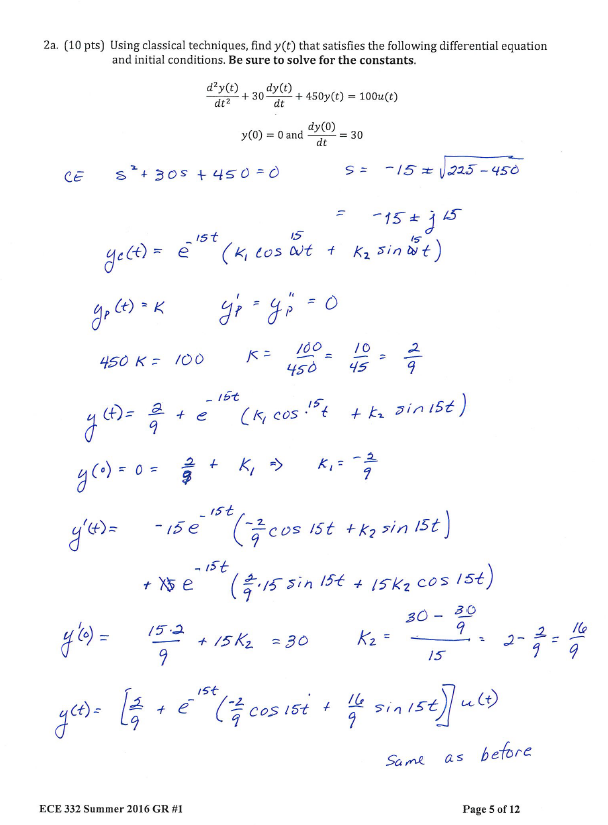 2a. (10 pts) Using classical techniques, find y(t) that satisfies the following differential equation
and initial conditions. Be sure to solve for the constants.
d²y(t)/dt² + 30 dy(t)/dt + 450y(t) = 100u(t)
y(0) = 0 and dy(0)/dt = 30
CE s² + 30s + 450 = 0 s = -15 ± √225-450
= -15 ± j 15
yc(t) = e^-15t (K₁ cos 15t + K₂ sin 15t)
yp(t) = K yp' = yp'' = 0
450 K = 100 K = 100/450 = 10/45 = 2/9
y(t) = 2/9 + e^-15t (K₁ cos 15t + K₂ sin 15t)
y(0) = 0 = 2/9 + K₁ ⇒ K₁ = -2/9
y'(t) = -15e^-15t (-2/9 cos 15t + K₂ sin 15t)
+ e^-15t (2/9·15 sin 15t + 15K₂ cos 15t)
y'(0) = 15·2/9 + 15K₂ = 30 K₂ = (30 - 30/9)/15 = 2 - 2/9 = 16/9
y(t) = [2/9 + e^-15t (-2/9 cos 15t + 16/9 sin 15t)] u(t)
Same as before
ECE 332 Summer 2016 GR #1 Page 5 of 12